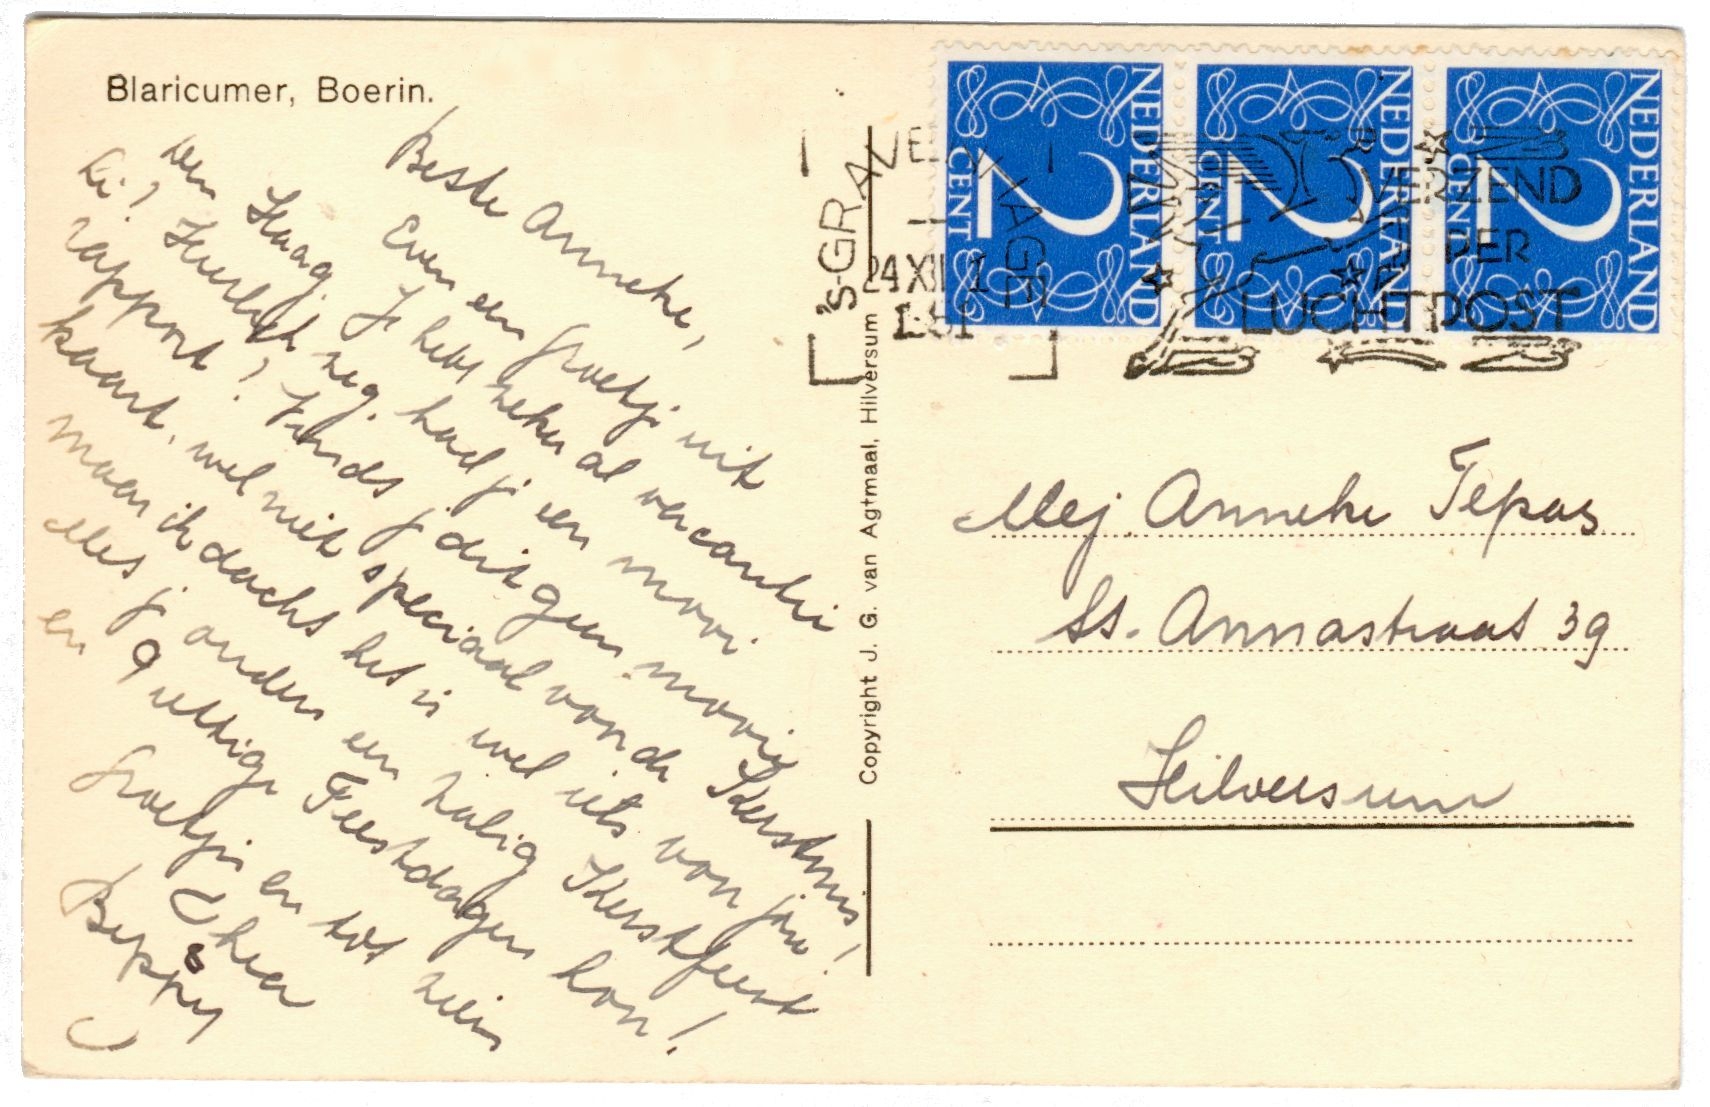 Blaricumer, Boerin.
Beste Anneke,
Even een groetje uit
Den Haag. Je hebt zeker al vacantie
hè? Heerlijk zeg. had je een mooi
rapport? Vinds je dit geen mooie
kaart, wel niet speciaal voor de Kerstmis,
maar ik dacht het is wel iets voor jou!
Alles je ouders een Zalig Kerstfeest
en gezellige Feestdagen hoor!
Groetjes en tot ziens
Thea
&
Beppy
Copyright J. G. van Agtmaal, Hilversum
'S-GRAVENHAGE
24 XII 1
1951
NEDERLAND
2
CENT
NEDERLAND
2
CENT
NEDERLAND
2
CENT
VERZEND
PER
LUCHTPOST
Mej. Anneke Tepas
St. Annastraat 39
Hilversum